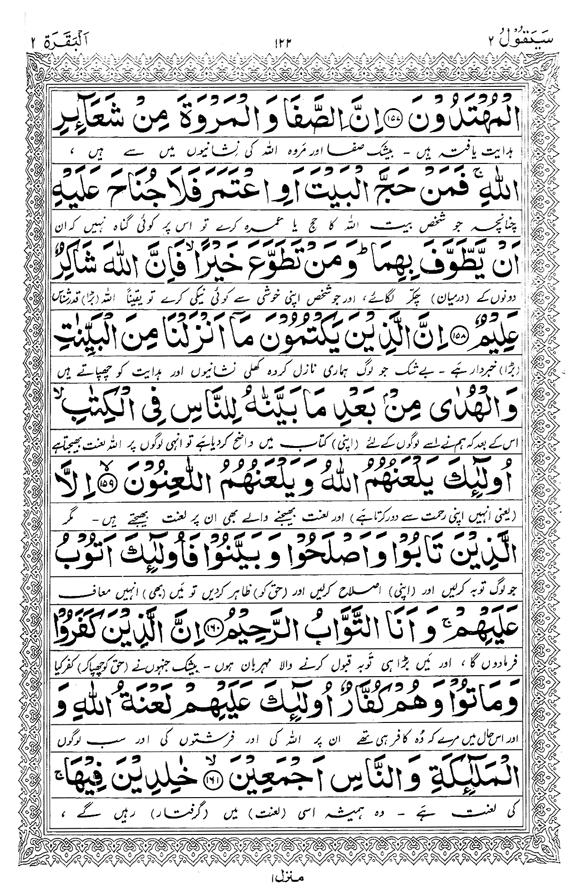 سَيَقُوْلُ ٢
١٢٢
اَلْبَقَرَة ٢
الْمُهْتَدُوْنَ ﴿١٥٧﴾ اِنَّ الصَّفَا وَ الْمَرْوَةَ مِنْ شَعَآئِرِ
ہدایت یافتہ ہیں - بیشک صفا اور مروہ اللہ کی نشانیوں میں سے ہیں ،
اللهِ ۚ فَمَنْ حَجَّ الْبَيْتَ اَوِ اعْتَمَرَ فَلَا جُنَاحَ عَلَيْهِ
چنانچہ جو شخص بیت اللہ کا حج یا عمرہ کرے تو اس پر کوئی گناہ نہیں کہ ان
اَنْ يَّطَّوَّفَ بِهِمَا ؕ وَ مَنْ تَطَوَّعَ خَيْرًا ۙ فَاِنَّ اللهَ شَاكِرٌ
دونوں کے (درمیان) چکر لگائے، اور جو شخص اپنی خوشی سے کوئی نیکی کرے تو یقیناً اللہ (بڑا) قدر شناس
عَلِيْمٌ ﴿١٥٨﴾ اِنَّ الَّذِيْنَ يَكْتُمُوْنَ مَاۤ اَنْزَلْنَا مِنَ الْبَيِّنٰتِ
(بڑا) خبردار ہے - بے شک جو لوگ ہماری نازل کردہ کھلی نشانیوں اور ہدایت کو چھپاتے ہیں
وَ الْهُدٰى مِنْۢ بَعْدِ مَا بَيَّنّٰهُ لِلنَّاسِ فِى الْكِتٰبِ ۙ
اس کے بعد کہ ہم نے اسے لوگوں کے لئے (اپنی) کتاب میں واضح کر دیا ہے تو انہی لوگوں پر اللہ لعنت بھیجتا ہے
اُولٰٓئِكَ يَلْعَنُهُمُ اللهُ وَ يَلْعَنُهُمُ اللّٰعِنُوْنَ ﴿١٥٩﴾ ۙ اِلَّا
(یعنی انہیں اپنی رحمت سے دور کرتا ہے) اور لعنت بھیجنے والے بھی ان پر لعنت بھیجتے ہیں - مگر
الَّذِيْنَ تَابُوْا وَ اَصْلَحُوْا وَ بَيَّنُوْا فَاُولٰٓئِكَ اَتُوْبُ
جو لوگ توبہ کر لیں اور (اپنی) اصلاح کر لیں اور (حق کو) ظاہر کر دیں تو میں (بھی) انہیں معاف
عَلَيْهِمْ ۚ وَ اَنَا التَّوَّابُ الرَّحِيْمُ ﴿١٦٠﴾ اِنَّ الَّذِيْنَ كَفَرُوْا
فرما دوں گا ، اور میں بڑا ہی توبہ قبول کرنے والا مہربان ہوں - بیشک جنہوں نے (حق کو چھپا کر) کفر کیا
وَ مَاتُوْا وَ هُمْ كُفَّارٌ اُولٰٓئِكَ عَلَيْهِمْ لَعْنَةُ اللهِ وَ
اور اس حال میں مرے کہ وہ کافر ہی تھے ان پر اللہ کی اور فرشتوں کی اور سب لوگوں
الْمَلٰٓئِكَةِ وَ النَّاسِ اَجْمَعِيْنَ ﴿١٦١﴾ ۙ خٰلِدِيْنَ فِيْهَا ۚ
کی لعنت ہے - وہ ہمیشہ اسی (لعنت) میں (گرفتار) رہیں گے ،
منزل ١